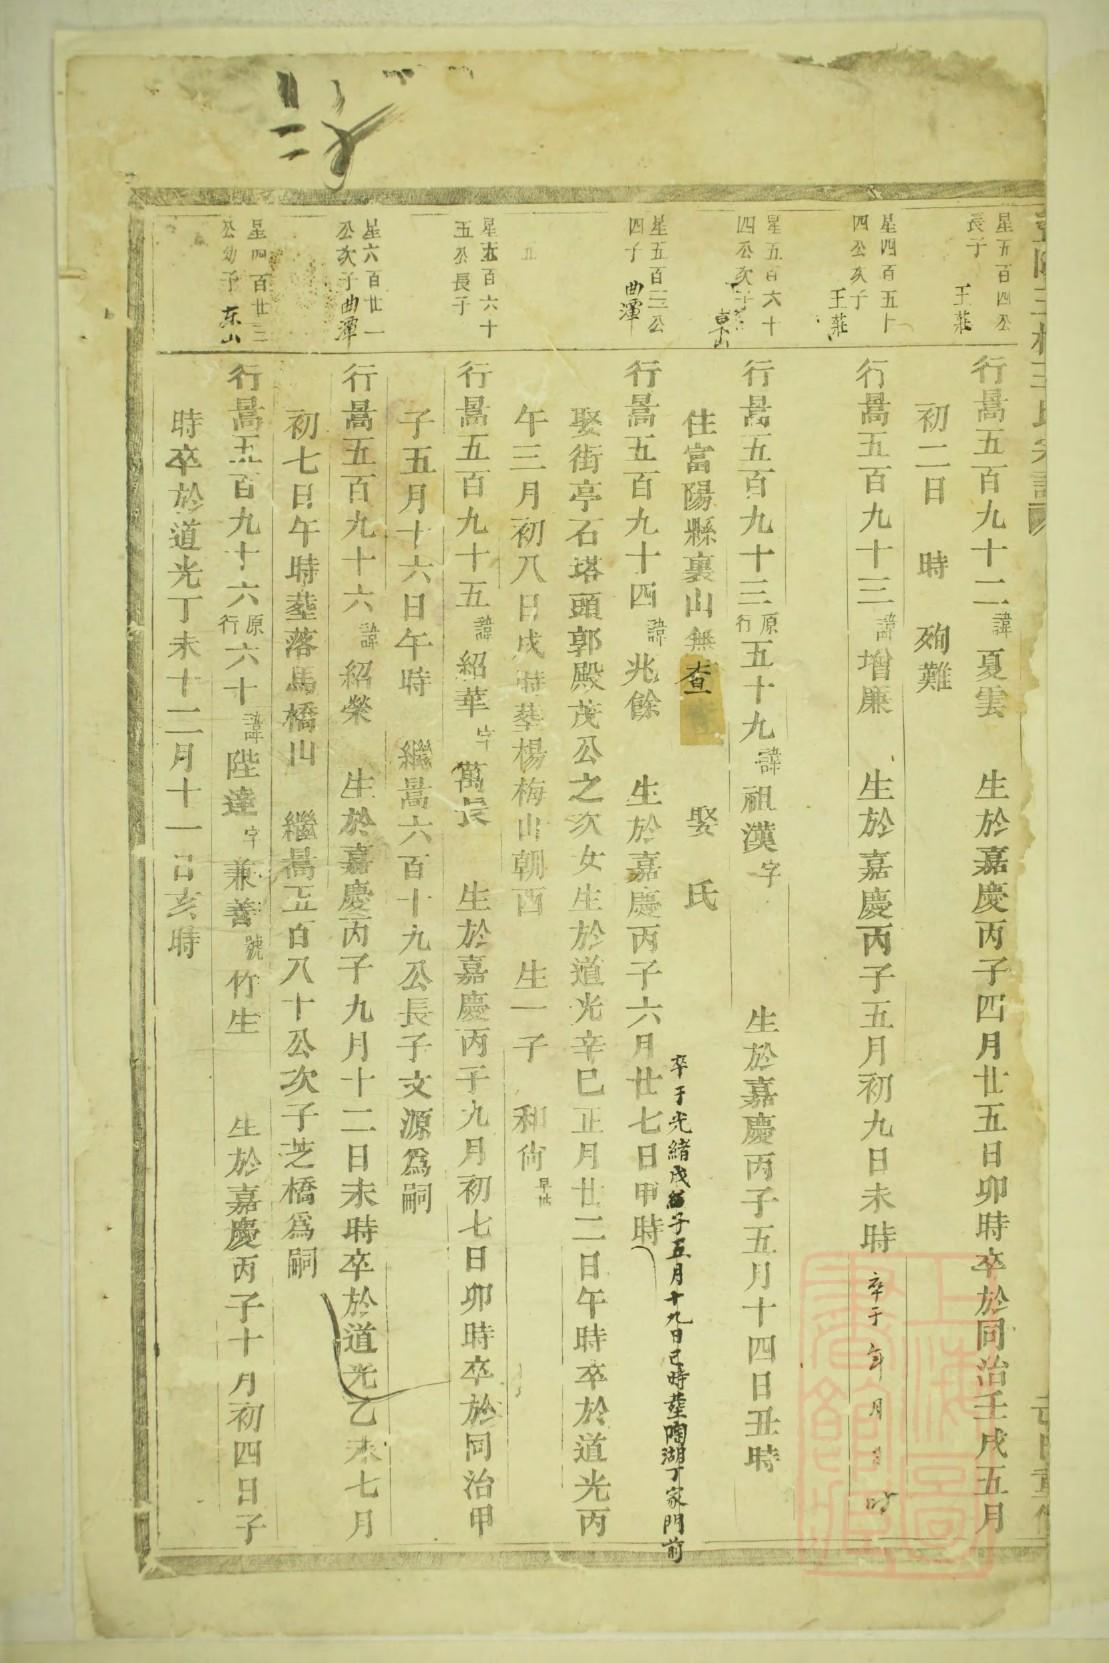 星五百四公
長子
王莊
行暠五百九十二諱夏雲 生於嘉慶丙子四月廿五日卯時卒於同治壬戌五月
初二日 時 殉難
星四百五十
四公次子
王莊
行暠五百九十三諱增廉 生於嘉慶丙子五月初九日未時 卒于 年 月 日 時
星五百六十
四公次子
行暠五百九十三原行五十九諱祖漢字 生於嘉慶丙子五月十四日丑時
住富陽縣裏山無查 娶 氏
星五百三公
四子
曲潭
行暠五百九十四諱兆餘 生於嘉慶丙子六月廿七日甲時
卒于光緒戊子五月十九日巳時塟陶湖丁家門前
娶街亭石塔頭郭殿茂公之次女生於道光辛巳正月廿二日午時卒於道光丙
午三月初八日戌時塟楊梅山朝酉 生一子 和尙早世
星五百六十
五公長子
行暠五百九十五諱紹華字萬長 生於嘉慶丙子九月初七日卯時卒於同治甲
子五月十六日午時 繼暠六百十九公長子文源爲嗣
星六百廿一
公次子
曲潭
行暠五百九十六諱紹榮 生於嘉慶丙子九月十二日未時卒於道光乙未七月
初七日午時塟落馬橋山 繼暠五百八十公次子芝橋爲嗣
星四百廿三
公幼子
东山
行暠五百九十六原行六十諱陛達字兼善號竹生 生於嘉慶丙子十月初四日子
時卒於道光丁未十二月十一日亥時